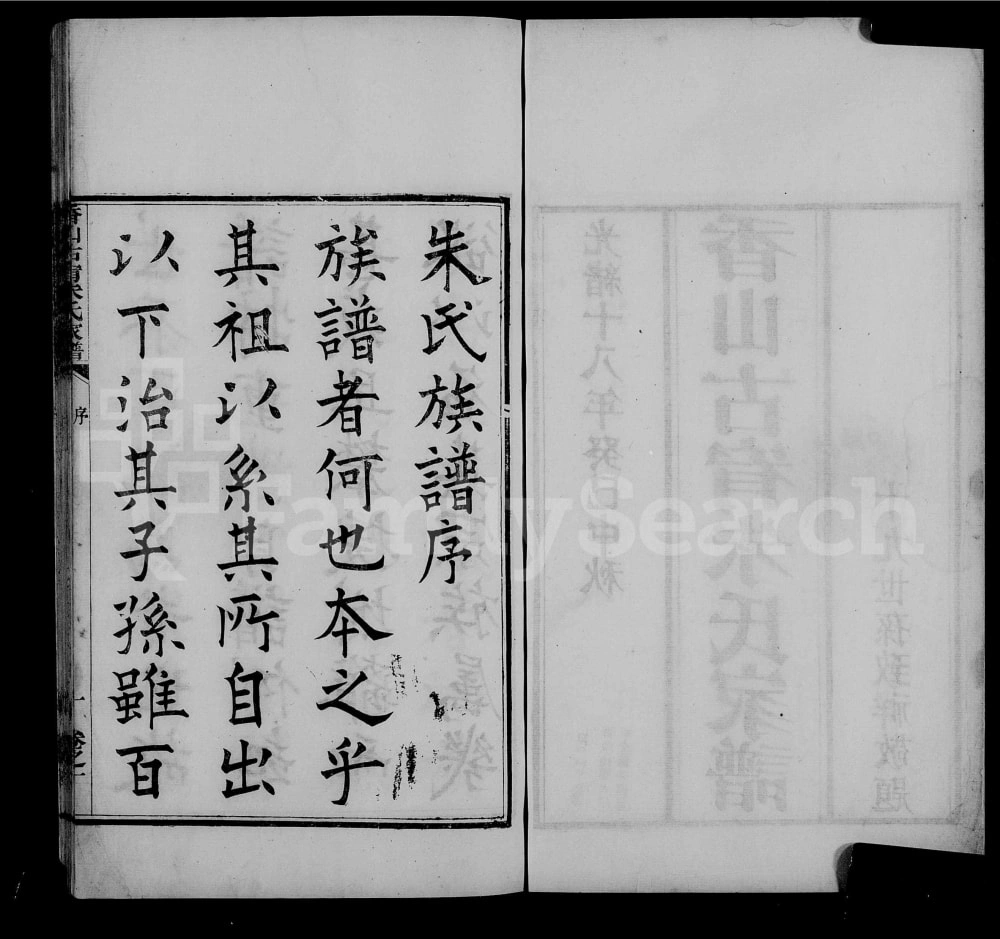 光緒十八年癸巳中秋
香山古宥朱氏家譜
十九世孫致祥敬題
朱氏族譜序
族譜者何也本之乎
其祖以系其所自出
以下治其子孫雖百
香山古宥朱氏家譜
序
一
卷之一
FamilySearch